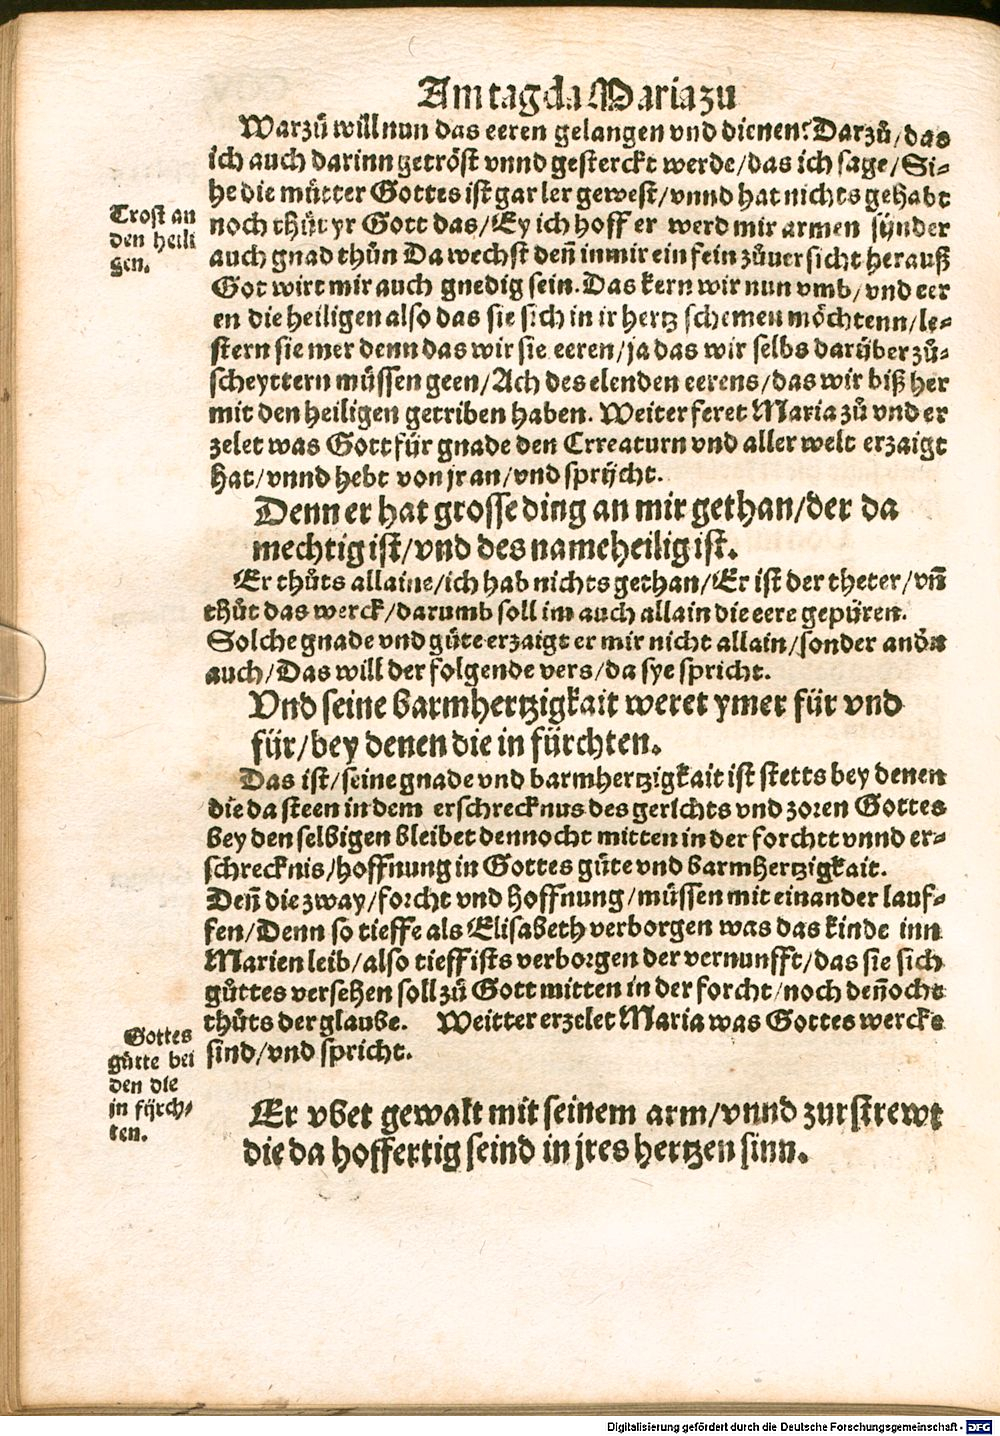 Am tag da Maria zu
Warzů will nun das eeren gelangen vnd dienen? Darzů/das
ich auch darinn getröst vnnd gesterckt werde/das ich sage/Si-
he die můtter Gottes ist gar ler gewest/vnnd hat nichts gehabt
noch thůt yr Gott das/Ey ich hoff er werd mir armen sÿnder
auch gnad thůn Da wechst deñ in mir ein fein zůuersicht herauß
Got wirt mir auch gnedig sein. Das kern wir nun vmb/vnd eer
en die heiligen also das sie sich in ir hertz schemen möchtenn/le-
stern sie mer denn das wir sie eeren/ja das wir selbs darüber zů-
scheyttern müssen geen/Ach des elenden eerens/das wir biß her
mit den heiligen getriben haben. Weiter feret Maria zů vnd er
zelet was Gott für gnade den Crreaturn vnd aller welt erzaigt
hat/vnnd hebt von jr an/vnd sprÿcht.
Trost an
den heili
gen.
Denn er hat grosse ding an mir gethan/der da
mechtig ist/vnd des name heilig ist.
Er thůts allaine/ich hab nichts gethan/Er ist der theter/vñ
thůt das werck/darumb soll im auch allain die eere gepüren.
Solche gnade vnd güte erzaigt er mir nicht allain/sonder andn
auch/Das will der folgende vers/da sye spricht.
Vnd seine barmhertzigkait weret ymer für vnd
für/bey denen die in fürchten.
Das ist/seine gnade vnd barmhertzigkait ist stetts bey denen
die da steen in dem erschrecknus des gerichts vnd zoren Gottes
bey den selbigen bleibet dennocht mitten in der forchtt vnnd er-
schrecknis/hoffnung in Gottes güte vnd barmhertzigkait.
Deñ die zway/forcht vnd hoffnung/müssen mit einander lauf-
fen/Denn so tieffe als Elisabeth verborgen was das kinde inn
Marien leib/also tieff ists verborgen der vernunfft/das sie sich
gůttes versehen soll zů Gott mitten in der forcht/noch deñocht
thůts der glaube. Weitter erzelet Maria was Gottes wercke
sind/vnd spricht.
Gottes
gütte bei
den die
in fÿrch-
ten.
Er vbet gewalt mit seinem arm/vnnd zurstrewt
die da hoffertig seind in jres hertzen sinn.
Digitalisierung gefördert durch die Deutsche Forschungsgemeinschaft - DFG